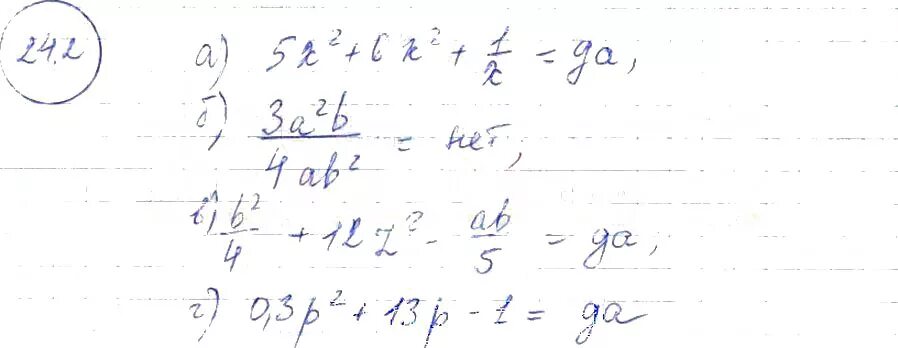 24.2
а) 5x² + 6x² + 1/x = да,
б) 3a²b/4ab² = нет,
в) b²/4 + 12z² - ab/5 = да,
г) 0,3p² + 13p - 1 = да